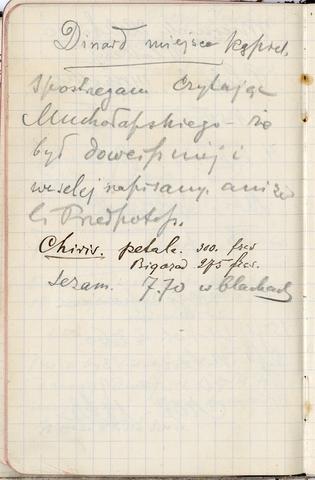 Dinard miejsce kąpiel.
Spostrzegam czytając
Muchołapskiego – że
był dowcipniej i
weselej napisany, aniże
li Przedpotop.
Chiris. petala. 300. frcs
Bigarad 275 frcs.
Sezam. 7.70 w blachach